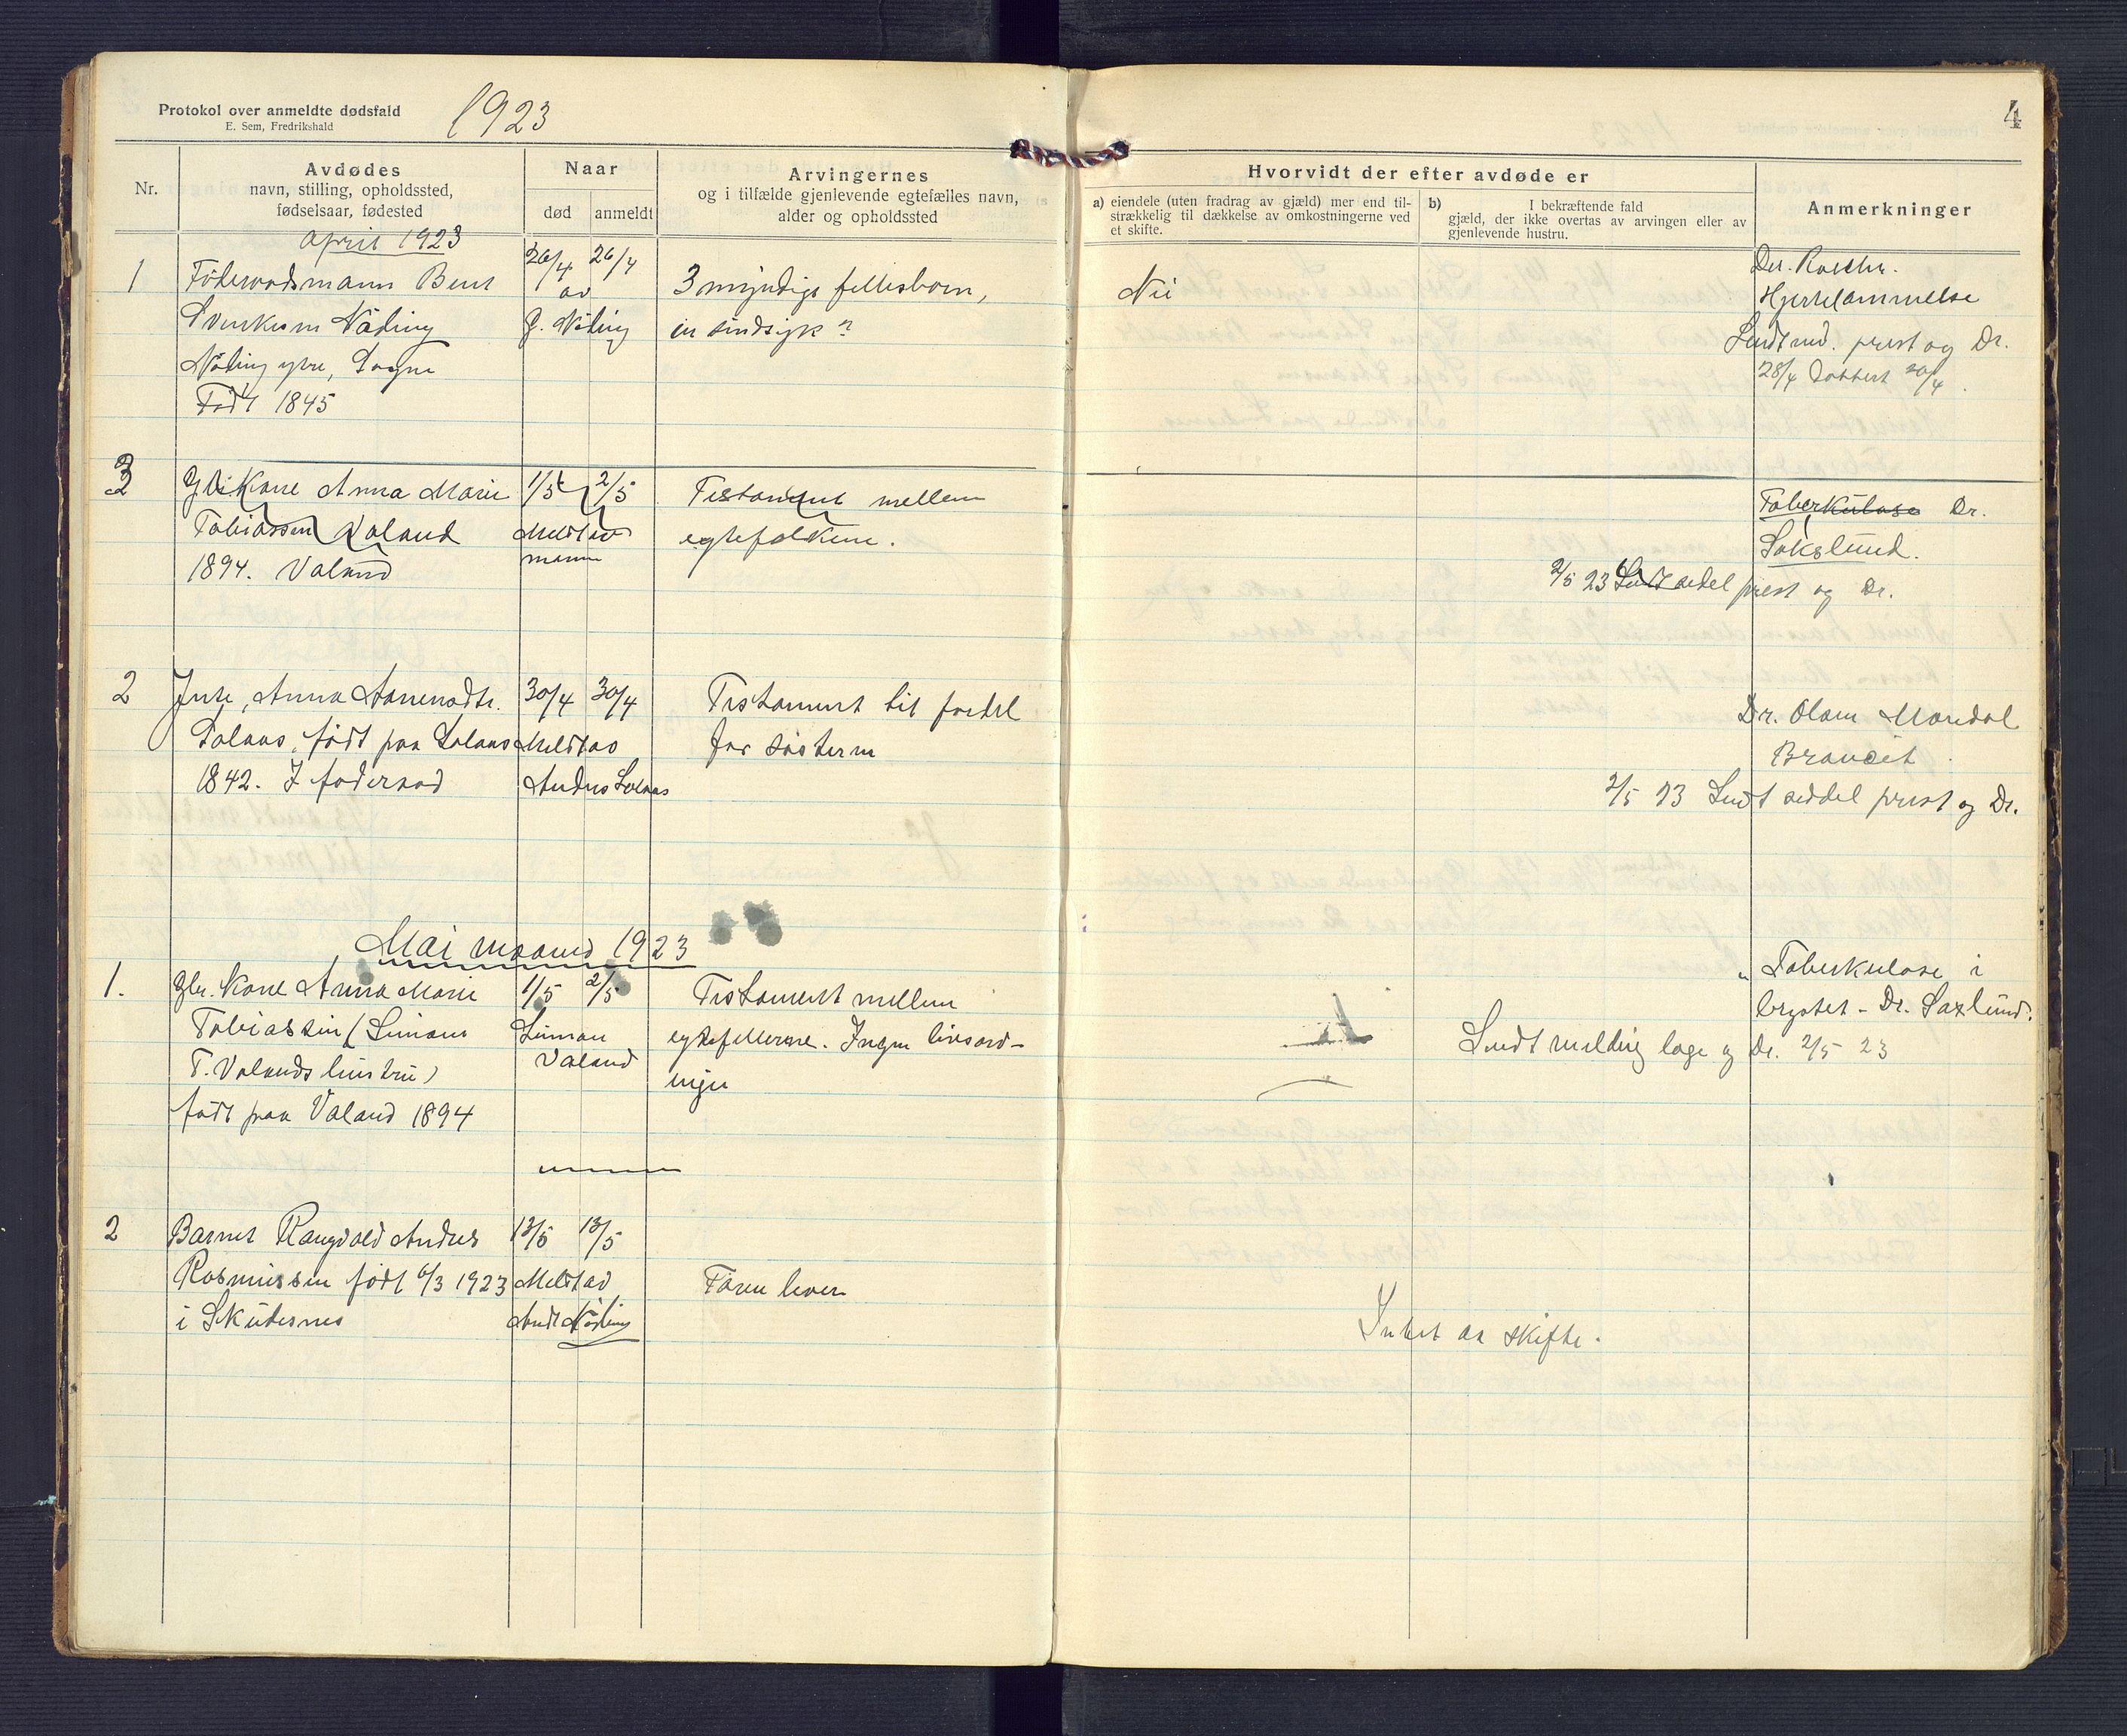 Protokol over anmeldte dødsfald
E. Sem, Fredrikshald
1923
4
Nr.
Avdødes
navn, stilling, opholdssted,
fødselsaar, fødested
Naar
død
anmeldt
Arvingernes
og i tilfælde gjenlevende egtefælles navn,
alder og opholdssted
Hvorvidt der efter avdøde er
a) eiendele (uten fradrag av gjæld) mer end til-
strækkelig til dækkelse av omkostningerne ved
et skifte.
b) I bekræftende fald
gjæld, der ikke overtas av arvingen eller av
gjenlevende hustru.
Anmerkninger
April 1923
1
Föderaadsmann Bent
Svenksen Nöding
Nöding ytre, Sogne
Född 1845
26/4 26/4
av
G. Nöding
3 myndige fellesborn,
en sindsyk
Nei
Hjertelammelse
Sendt med. prest og Dr.
28/4
3
Gbr. Kone Anna Marie
Tobiassen Valand
1894. Valand
1/5 2/5
Meldt av
mann
Testament mellem
egtefolkene.
Toberkulose Dr.
Sakslund.
2/5 23 Sendt sedel prest og Dr.
2
Jnte, Anna Aanensdtr.
Solaas, född paa Solaas
1842. I foderaad
30/4 30/4
Meldt av
Anders Solaas
Testament til fordel
for søsteren
Dr. Olsen Mandal
2/5 23 Sendt seddel prest og Dr.
Mai maaned 1923
1.
Gbr. Kone Anna Marie
Tobiassen (Simon
T. Valands hustru)
född paa Valand 1894
1/5 2/5
Simon
Valand
Testament mellem
egtefellerne. Ingen livsarv-
inger
Sendt melding lage og Dr. 2/5 23
Toberkulose i
brystet - Dr. Saxlund.
2
Barnet Rangvald Andres
Rasmussen född 6/3 1923
i Skudesnes
13/5 13/5
Meldt av
Andr. Nöding
Faren lever
Intet aa skifte.